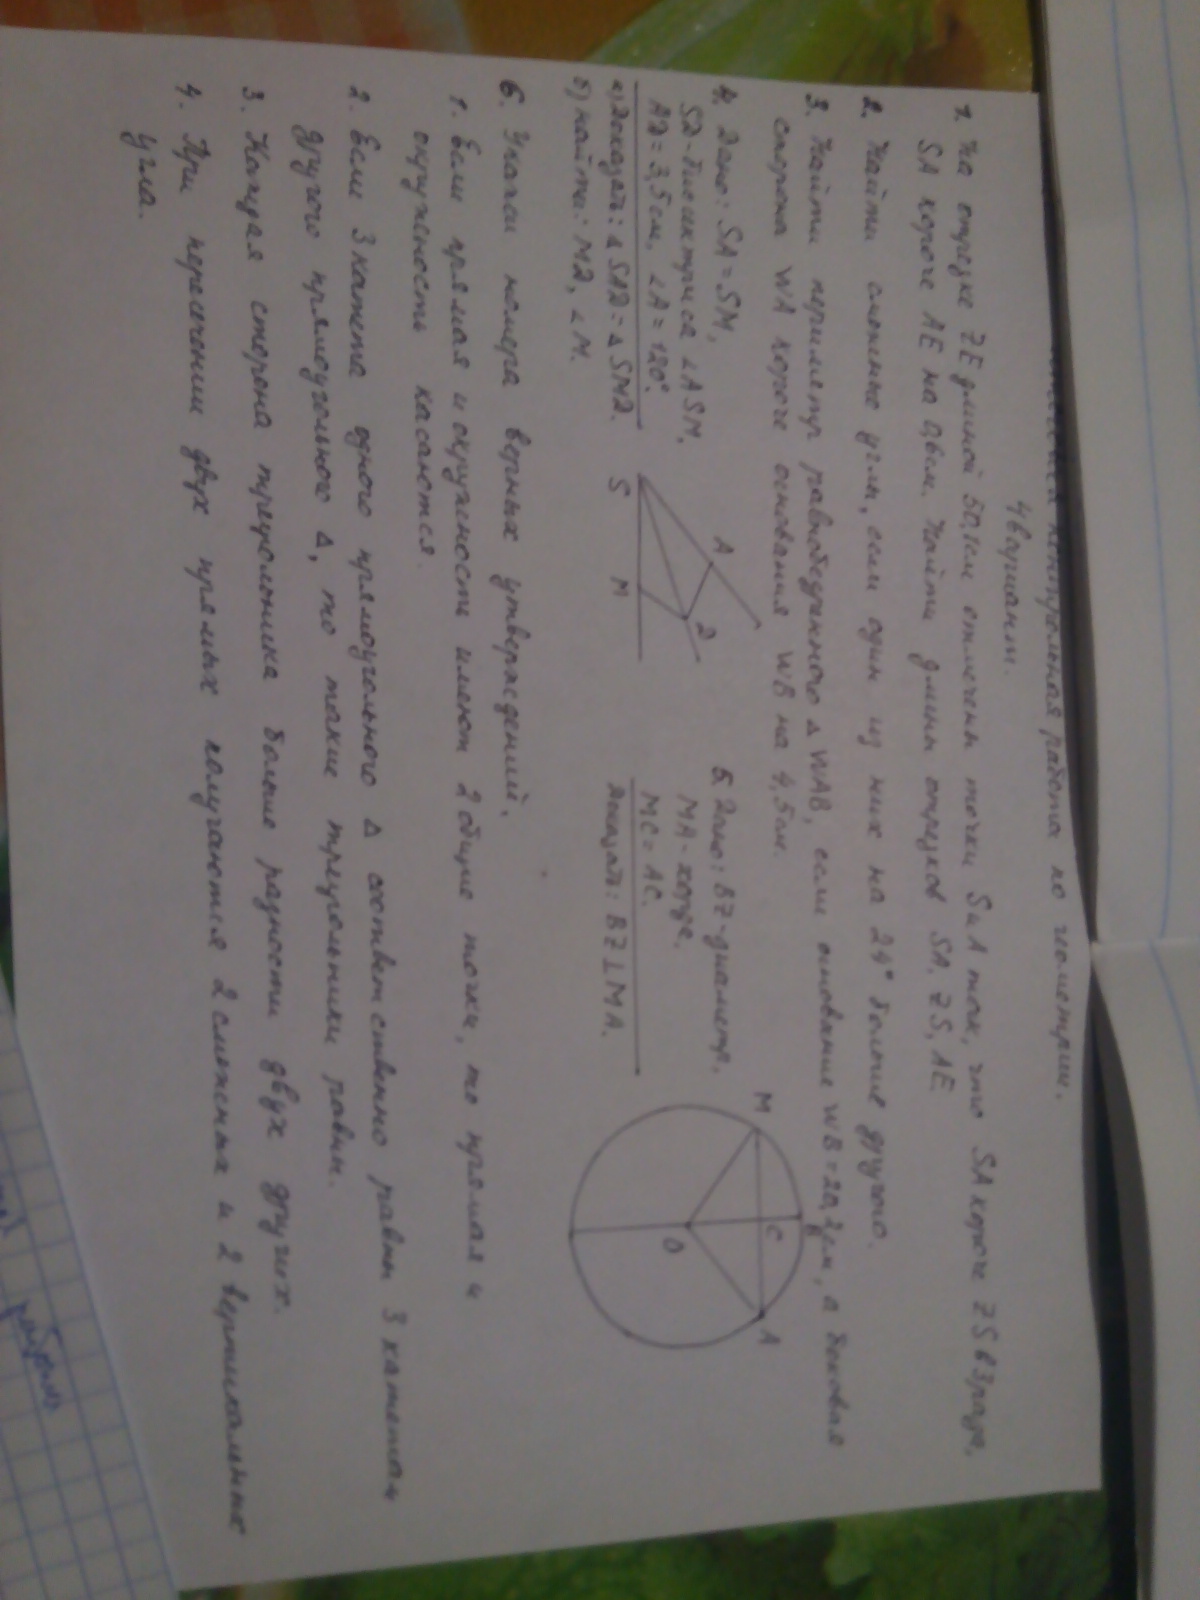 контрольная работа по геометрии.
4 вариант.
1. На отрезке ZE длиной 50,1см отмечены точки S и A так, что SA короче ZS в 3 раза,
SA короче AE на 0,6см. Найти длины отрезков SA, ZS, AE
2. Найти смежные углы, если один из них на 24° больше другого.
3. Найти периметр равнобедренного △ WAB, если основание WB = 20,2см, а боковая
сторона WA короче основания WB на 4,5см.
4. Дано: SA = SM,
SD - биссектриса ∠ASM,
AD = 3,5см, ∠A = 120°.
а) Доказать: △ SAD = △ SMD.
б) найти: MD, ∠M.
S M A D
5. Дано: BZ - диаметр,
MA - хорда,
MC = AC.
Доказать: BZ ⊥ MA.
M C A O
6. Укажи номера верных утверждений.
1. Если прямая и окружность имеют 2 общие точки, то прямая и
окружность касаются.
2. Если 3 катета одного прямоугольного △ соответственно равны 3 катетам
другого прямоугольного △, то такие треугольники равны.
3. Каждая сторона треугольника больше разности двух других.
4. При пересечении двух прямых получаются 2 смежных и 2 вертикальных
угла.